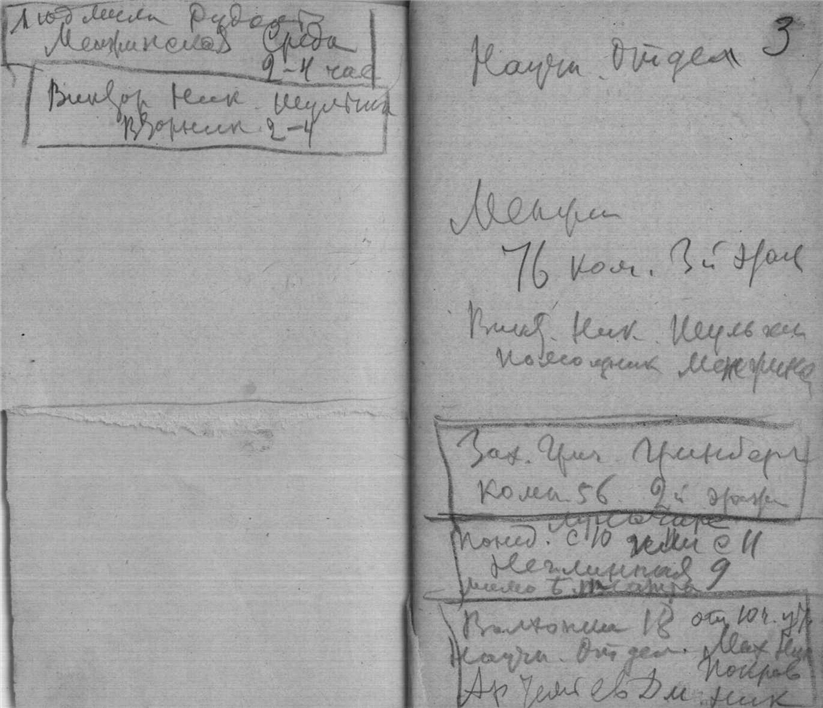 Людмила Рудол
Менжинская Среда
2-4 час
Виктор Ник. Шульгин
Вторник 2-4
3
Научн. отдел
76 ком. 3й этаж
Викт. Ник. Шульгин
помощник Менжинск
Зах. Григ. Гринберг
комн. 56 2й этаж
Понед. с 10 или с 11
Неглинная 9
мимо Б. театра
Волхонка 18 от 10 ч. утр
Научн. Отдел. Мих Ник
Покров
Артемьев Дм. Ник